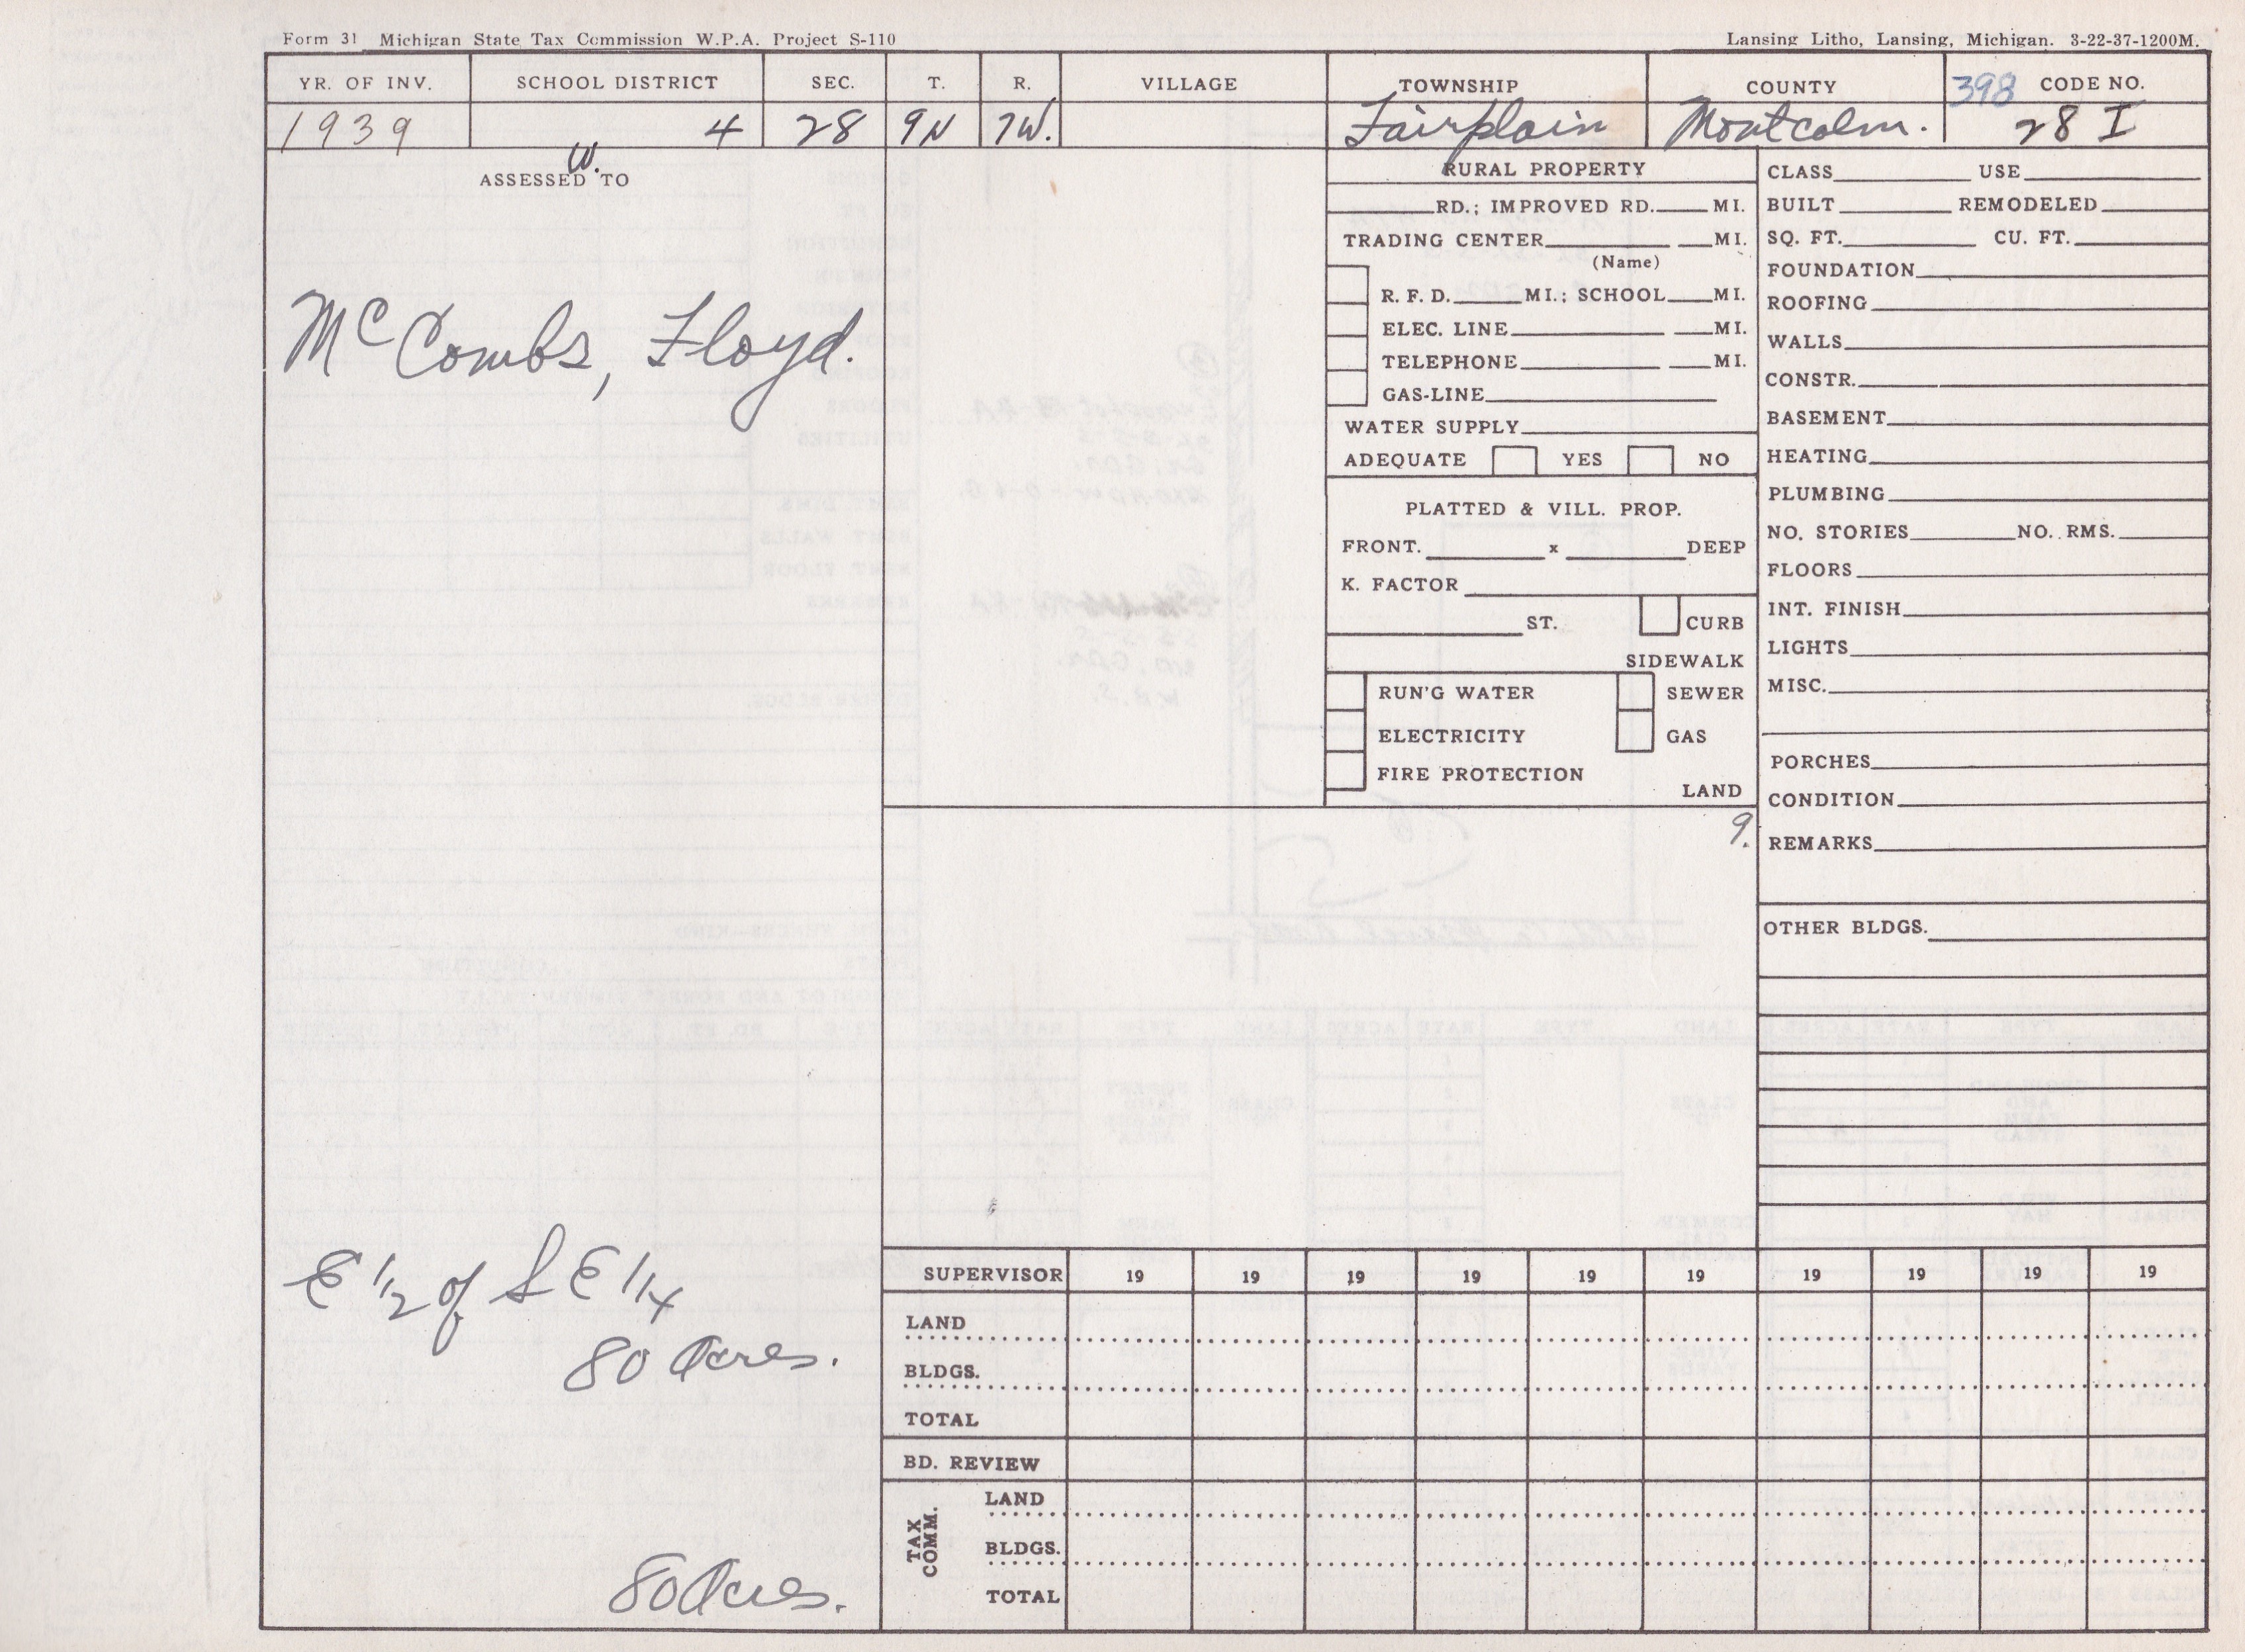 Form 31 Michigan State Tax Commission W.P.A. Project S-110
Lansing Litho, Lansing, Michigan. 3-22-37-1200M.
YR. OF INV. SCHOOL DISTRICT SEC. T. R. VILLAGE TOWNSHIP COUNTY 398 CODE NO.
1939 4 28 9N 7W. Fairplain Montcalm. 28 I
W.
ASSESSED TO
McCombs, Floyd.
E 1/2 of S E 1/4
80 Acres.
80 Acres.
RURAL PROPERTY
RD.; IMPROVED RD. MI.
TRADING CENTER MI.
(Name)
R. F. D. MI.; SCHOOL MI.
ELEC. LINE MI.
TELEPHONE MI.
GAS-LINE
WATER SUPPLY
ADEQUATE YES NO
PLATTED & VILL. PROP.
FRONT. x DEEP
K. FACTOR
ST. CURB
SIDEWALK
RUN'G WATER SEWER
ELECTRICITY GAS
FIRE PROTECTION
LAND
9.
CLASS USE
BUILT REMODELED
SQ. FT. CU. FT.
FOUNDATION
ROOFING
WALLS
CONSTR.
BASEMENT
HEATING
PLUMBING
NO. STORIES NO. RMS.
FLOORS
INT. FINISH
LIGHTS
MISC.
PORCHES
CONDITION
REMARKS
OTHER BLDGS.
SUPERVISOR 19 19 19 19 19 19 19 19 19 19
LAND
BLDGS.
TOTAL
BD. REVIEW
TAX COMM.
LAND
BLDGS.
TOTAL